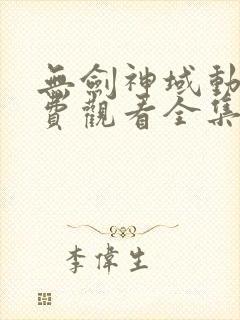 無劍神域動
費觀看全集
李偉生